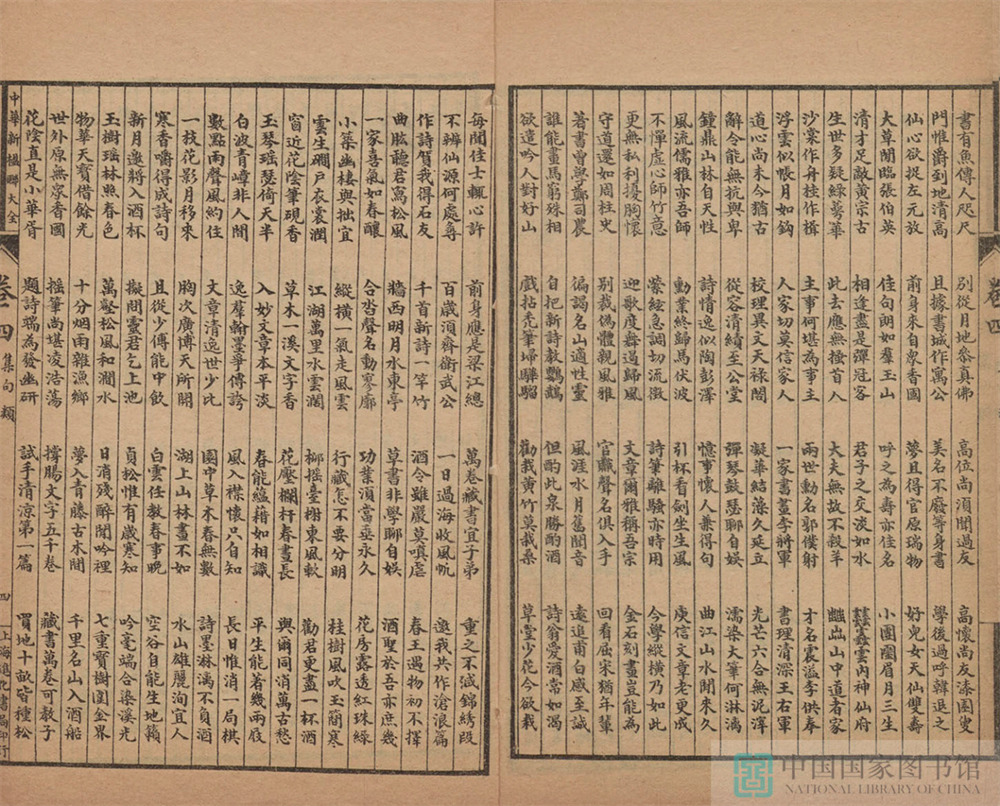 書有魚傳人咫尺 別從月地參真佛 高位尚須聞過友 高懷尚友漆園叟
門惟爵到地清高 且據書城作寓公 美名不廢等身書 學後過呼韓退之
仙心欲捉左元放 前身來自眾香國 夢且得官原瑞物 好兒女天仙雙壽
大草閒臨張伯英 佳句朗如羣玉山 呼之為壽亦佳名 小團圞眉月三生
清才足敵黃宗古 相逢盡是彈冠客 君子之交淡如水 雲內神仙府
生世多疑綠萼華 此去應無搔首人 大夫無故不殺羊 山中道者家
沙棠作舟桂作楫 主事何堪為事主 兩世勳名郭僕射 才名震溢李供奉
浮雲似帳月如鈎 人家切莫信家人 一家書畫李將軍 書理清深王右軍
道心尚未今猶古 校理異文天祿閣 凝華結藻久延立 光芒六合無泥滓
辭令能無抗與卑 從容清績至公堂 彈琴鼓瑟聊自娛 濡染大筆何淋漓
鐘鼎山林自天性 詩情逸似陶彭澤 憶事懷人兼得句 曲江山水聞來久
風流儒雅亦吾師 勳業終歸馬伏波 引杯看劍坐生風 庾信文章老更成
不憚虛心師竹意 縈絃急調切流徵 詩筆離騷亦時用 今學縱橫乃如此
更無私利擾胸懷 迎歌度舞遏歸風 文章爾雅稱吾宗 金石刻畫豈能為
守道還如周柱史 別裁偽體親風雅 官職聲名俱入手 回看屈宋猶年輩
著書曾學鄭司農 徧謁名山適性靈 風涯水月舊聞音 遠追甫白感至諴
誰能畫馬窮殊相 自把新詩教鸚鵡 但酌此泉勝酌酒 詩翁愛酒常如渴
欲遣吟人對好山 戲拈禿筆埽驊騮 勸栽黃竹莫栽桑 草堂少花今欲栽
卷四
每聞佳士輒心許 前身應是梁江總 萬卷藏書宜子弟 重之不減錦綉段
不辨仙源何處尋 百歲須齊衛武公 一日過海收風帆 邀我共作滄浪篇
作詩賀我得石友 千首新詩一竿竹 酒令雖嚴莫嗔虐 春王遇物初不擇
曲肱聽君寫松風 牆西明月水東亭 草書非學聊自娛 酒聖於吾亦庶幾
一家喜氣如春釀 合沓聲名動寥廓 功業須當垂永久 花房露透紅珠綠
小築幽棲與拙宜 縱橫一氣走風雲 行藏怎不要分明 桂樹風吹玉蕳寒
雲生磵戶衣裳潤 江湖萬里水雲闊 柳搖臺榭東風軟 勸君更盡一杯酒
窗近花陰筆硯香 草木一溪文字香 花壓欄杆春晝長 與爾同消萬古愁
玉琴瑤瑟倚天半 入妙文章本平淡 春能蘊藉如相識 平生能著幾兩屐
白波青嶂非人間 逸羣翰墨爭傳誇 風入襟懷只自知 長日惟消一局棋
數點雨聲風約住 文章清逸世少比 園中草木春無數 詩墨淋漓不負酒
一枝花影月移來 胸次廣博天所開 湖上山林畫不如 水山雄麗洵宜人
寒香嚼得成詩句 且從少傳能中飲 白雲任教春事晚 空谷自能生地籟
新月邀將入酒杯 擬問靈君乞上池 貞松惟有歲寒知 吟毫端合染溪光
玉樹瑤林照春色 萬壑松風和澗水 日消殘醉閒吟裡 七重寶樹圍金界
物華天寶借餘光 十分烟雨雜漁鄉 夢入青藤古木間 千里名山入酒船
世外原無眾香國 搖筆尚堪凌浩蕩 撐腸文字五千卷 藏書萬卷可教子
花陰直是小華胥 題詩端為發幽研 試手清涼第一篇 買地十畝皆種松
中華新楹聯大全
卷四 集句類
四
中国国家图书馆
NATIONAL LIBRARY OF CHINA